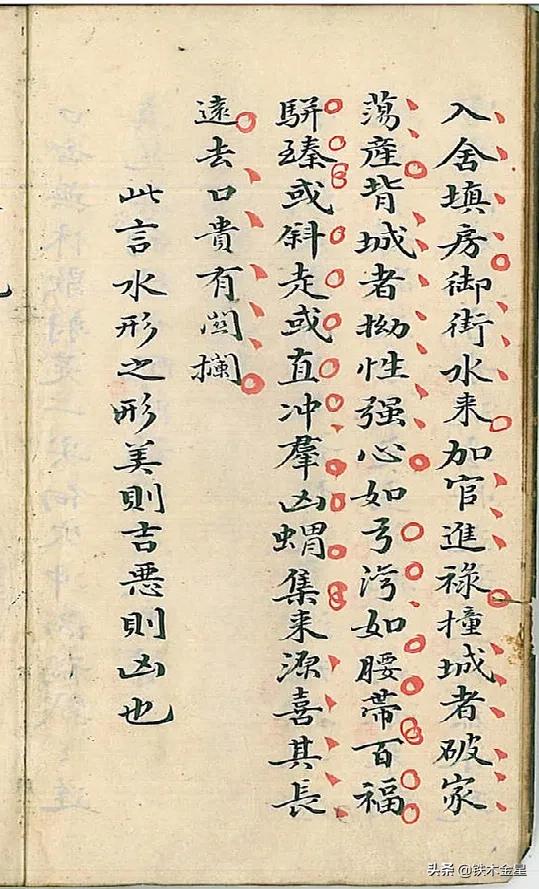 入舍填房御街水来加官進禄撞城者破家
蕩産背城者拗性强心如弓湾如腰帯百福
駢臻或斜走或直冲羣凶蝟集来源喜其長
遠去口貴有関攔
此言水形之形美則吉悪則凶也
头条 @铁木金星